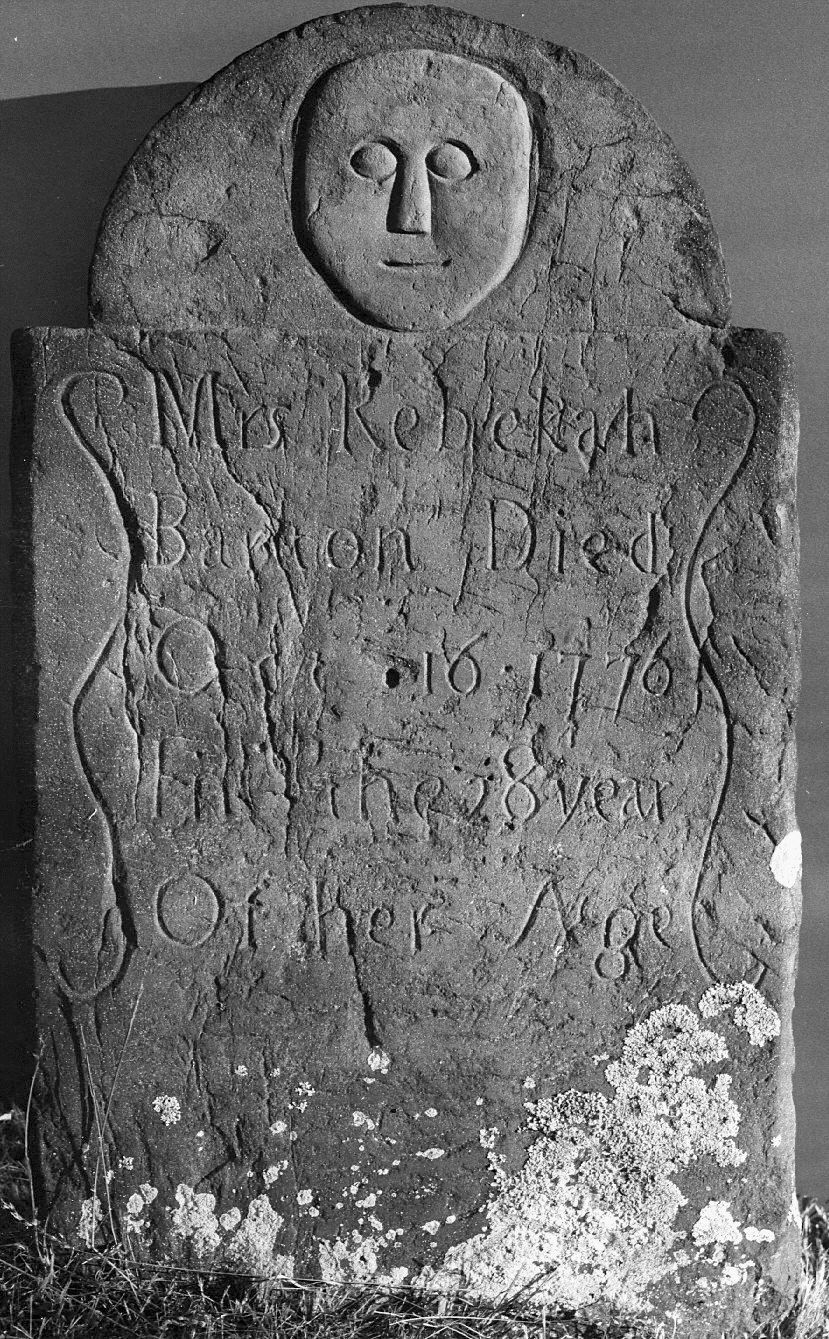 Mrs Rebekah
Barton Died
Octr · 16 · 1776
In the 28 year
Of her Age